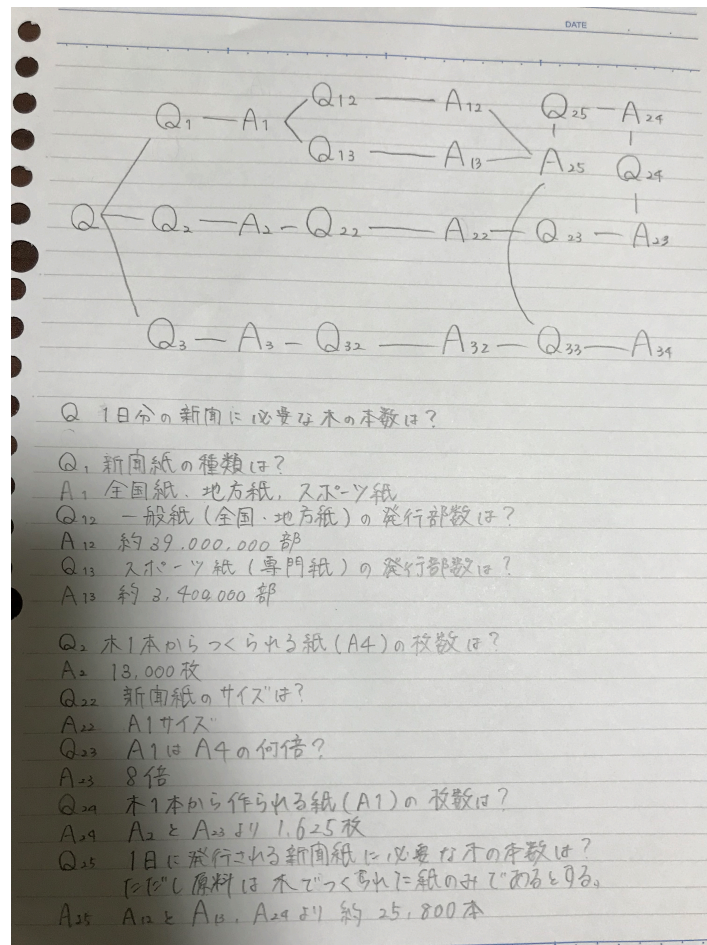 DATE
Q₁ — A₁ Q₁₂ — A₁₂ Q₂₅ — A₂₄
Q₁₃ — A₁₃ — A₂₅ Q₂₄
Q — Q₂ — A₂ — Q₂₂ — A₂₂ — Q₂₃ — A₂₃
Q₃ — A₃ — Q₃₂ — A₃₂ — Q₃₃ — A₃₄
Q 1日分の新聞に必要な木の本数は?
Q₁ 新聞紙の種類は?
A₁ 全国紙、地方紙、スポーツ紙
Q₁₂ 一般紙(全国・地方紙)の発行部数は?
A₁₂ 約39,000,000部
Q₁₃ スポーツ紙(専門紙)の発行部数は?
A₁₃ 約3,400,000部
Q₂ 木1本からつくられる紙(A4)の枚数は?
A₂ 13,000枚
Q₂₂ 新聞紙のサイズは?
A₂₂ A1サイズ
Q₂₃ A1はA4の何倍?
A₂₃ 8倍
Q₂₄ 木1本から作られる紙(A1)の枚数は?
A₂₄ A₂とA₂₃より1,625枚
Q₂₅ 1日に発行される新聞紙に必要な木の本数は?
ただし原料は木でつくられた紙のみであるとする。
A₂₅ A₁₂とA₁₃、A₂₄より約25,800本